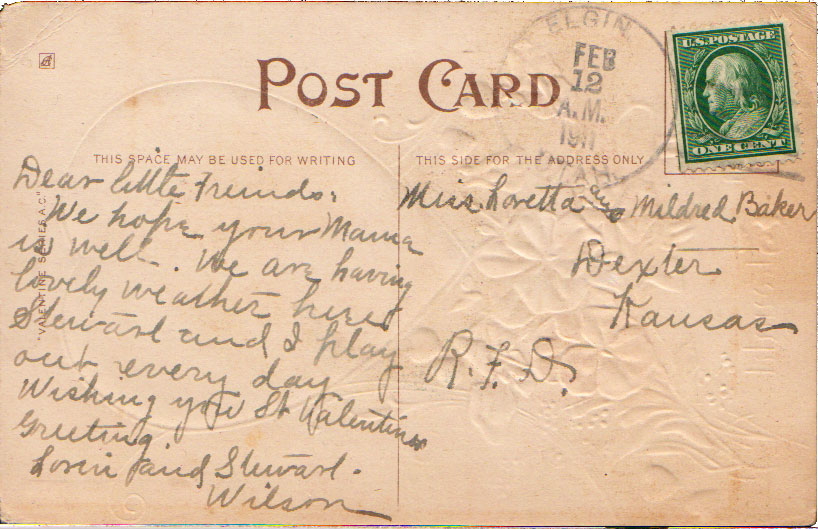 ELGIN
FEB
12
A.M.
1911
UTAH
U.S. POSTAGE
ONE CENT
POST CARD
THIS SPACE MAY BE USED FOR WRITING
THIS SIDE FOR THE ADDRESS ONLY
"VALENTINE SERIES A.C."
Dear little Freinds:
We hope your Mama
is well. We are having
lovely weather here
Stewart and I play
out every day
Wishing you St Valentines
Greeting.
Loren and Stewart.
Wilson
Miss Loretta and Mildred Baker
Dexter
Kansas
R.F.D.